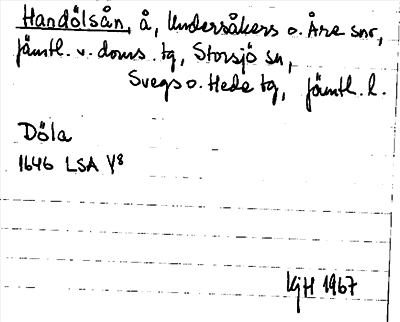 Handölsån, å, Undersåkers o. Åre snr,
Jämtl. v. doms. tg, Storsjö sn,
Svegs o. Hede tg, Jämtl. l.
Döla
1646 LSA Y8
KjH 1967